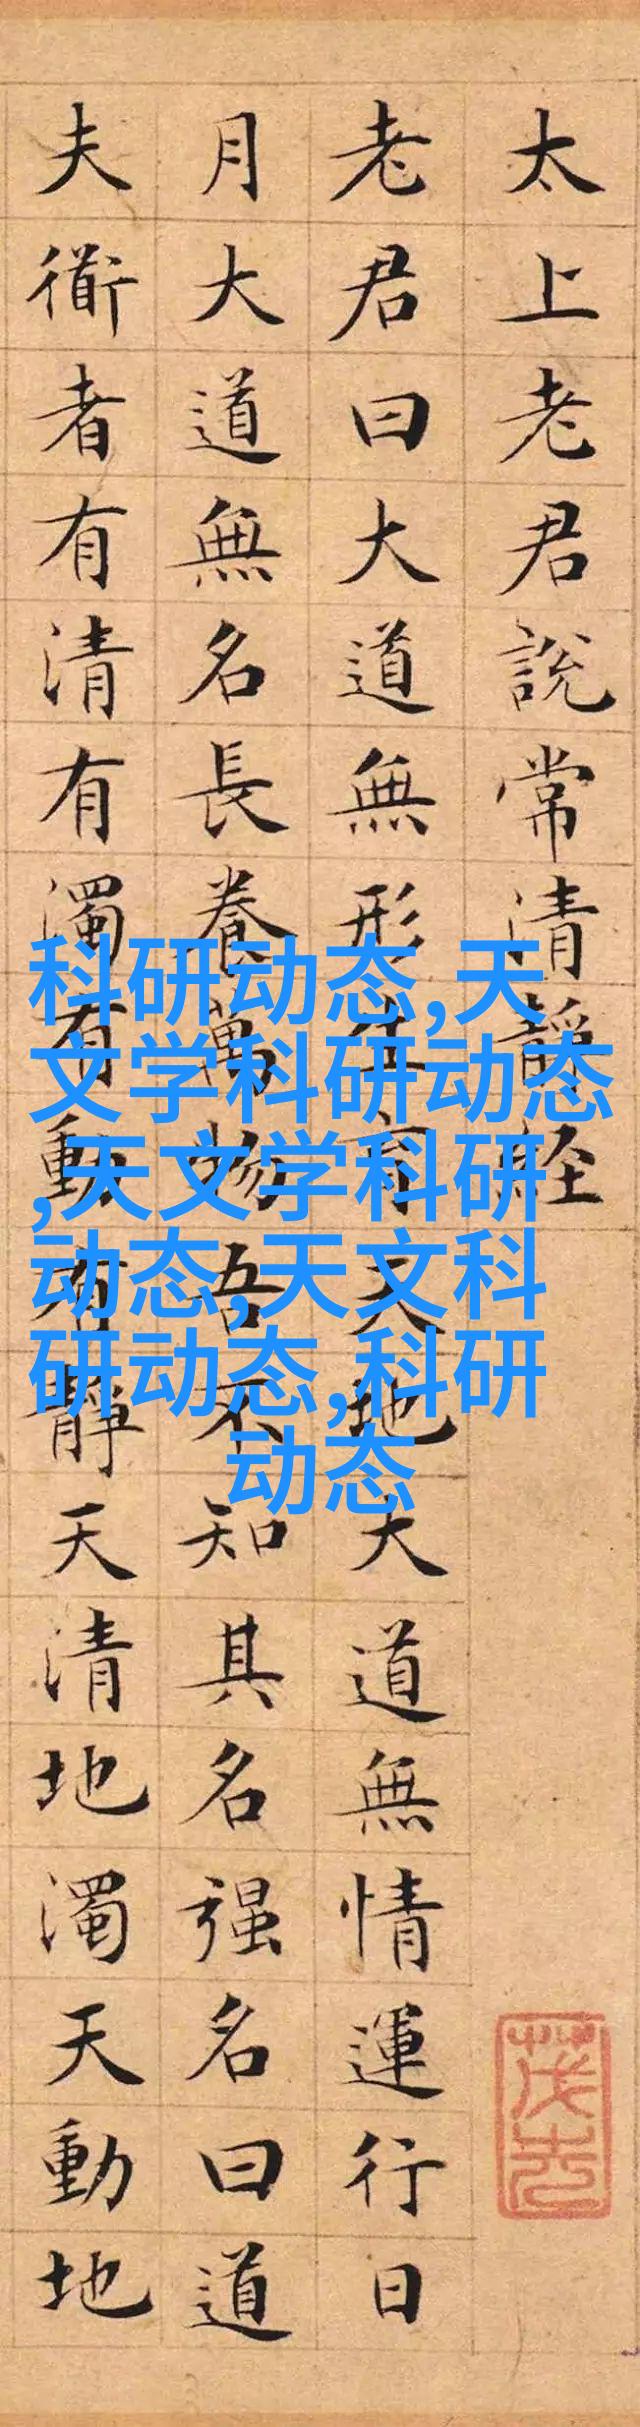 太上老君說常清靜経
老君曰大道無形生育天地大道無情運行日
月大道無名長養萬物吾不知其名强名曰道
夫衜者有清有濁有動有靜天清地濁天動地
科研动态,天
文学科研动态
,天文学科研
动态,天文科
研动态,科研
动态